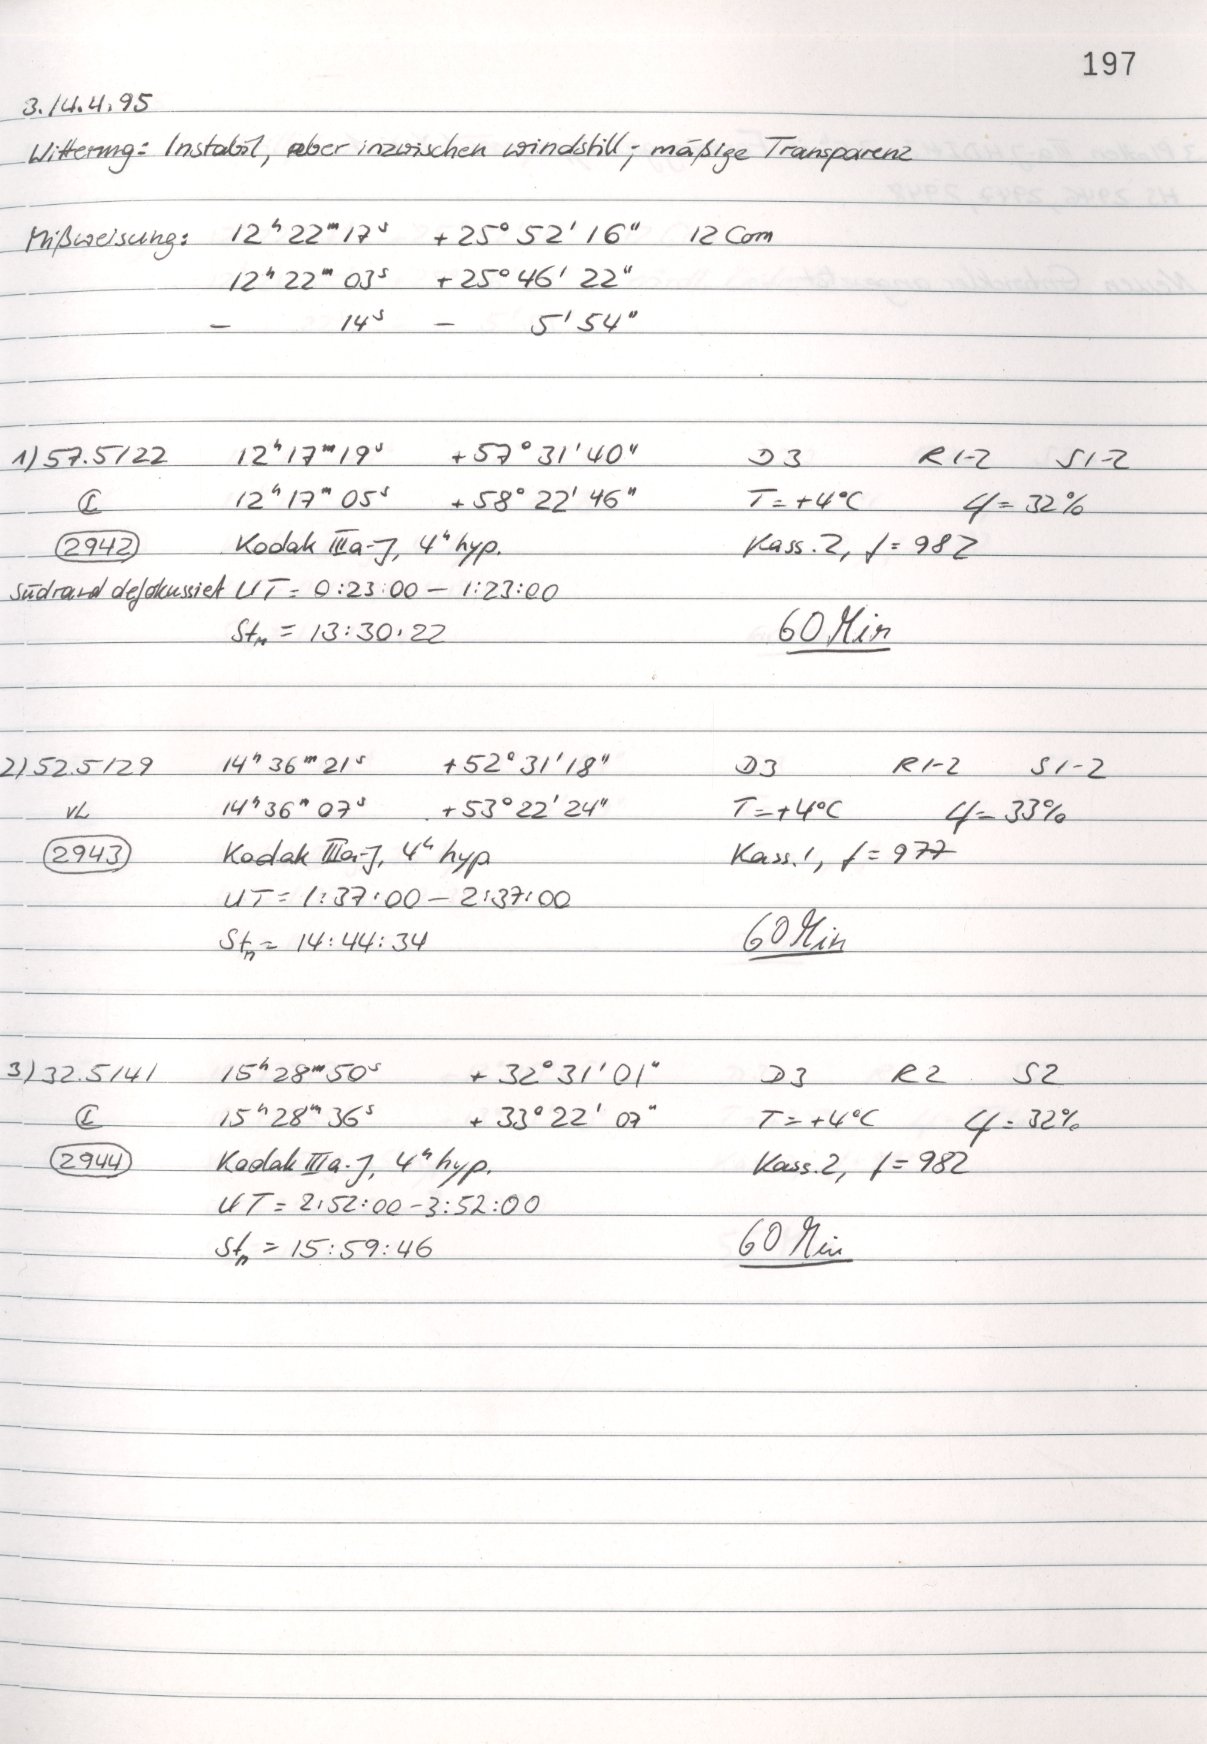 197
3./4.4.95
Witterung: Instabil, aber inzwischen windstill; mäßige Transparenz
Mißweisung: 12ʰ22ᵐ17ˢ +25°52'16" 12 Com
12ʰ22ᵐ03ˢ +25°46'22"
- 14ˢ - 5'54"
1) 57.5/22 12ʰ17ᵐ19ˢ +57°31'40" D3 R1-2 S1-2
12ʰ17ᵐ05ˢ +58°22'46" T=+4°C φ=32%
2942 Kodak IIIa-J, 4ʰ hyp. Kass. 2, f=982
Südrand defokussiert UT=0:23:00-1:23:00
Stₙ=13:30:22 60 Min
2) 52.5/29 14ʰ36ᵐ21ˢ +52°31'18" D3 R1-2 S1-2
vL 14ʰ36ᵐ07ˢ +53°22'24" T=+4°C φ=33%
2943 Kodak IIIa-J, 4ʰ hyp Kass. 1, f=977
UT=1:37:00-2:37:00
Stₙ=14:44:34 60 Min
3) 32.5/41 15ʰ28ᵐ50ˢ +32°31'01" D3 R2 S2
15ʰ28ᵐ36ˢ +33°22'07" T=+4°C φ=32%
2944 Kodak IIIa-J, 4ʰ hyp. Kass. 2, f=982
UT=2:52:00-3:52:00
Stₙ=15:59:46 60 Min